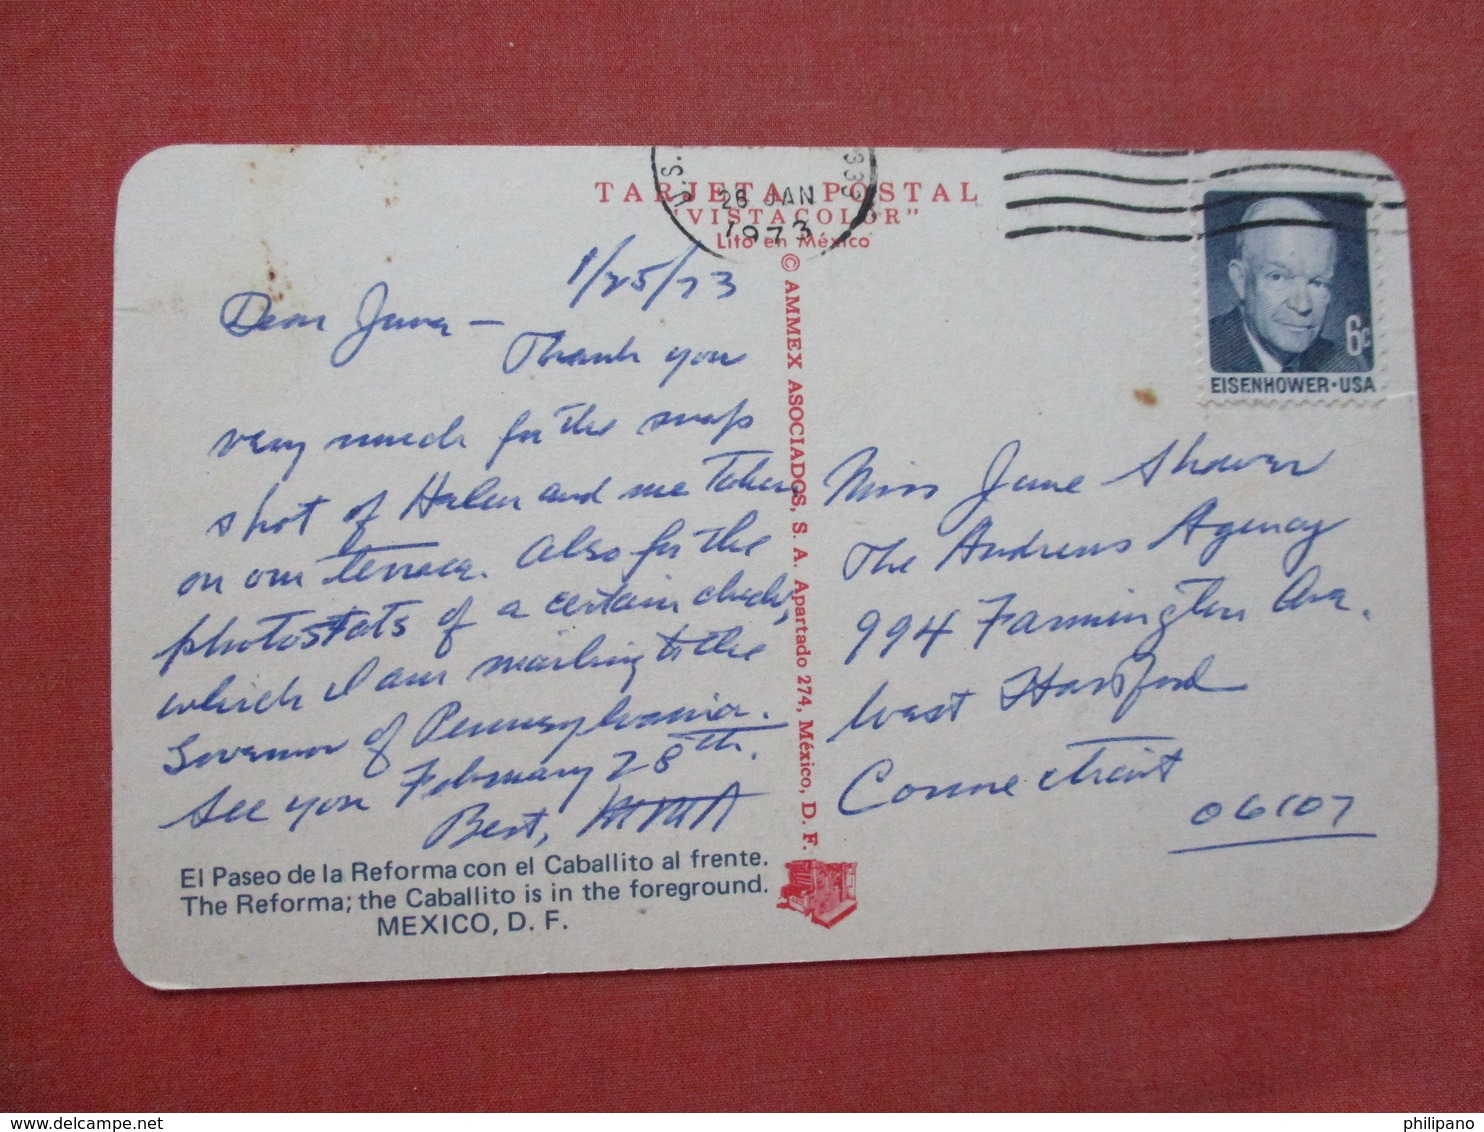 TARJETA POSTAL
"VISTACOLOR"
Lito en México
U.S.
26 JAN
1973
333
© AMMEX ASOCIADOS, S. A. Apartado 274, México, D. F.
6c
EISENHOWER·USA
1/25/73
Dear June —
Thank you
very much for the snap
shot of Helen and me taken
on our terrace. Also for the
photostats of a certain check,
which I am mailing to the
Governor of Pennsylvania.
See you February 28th.
Best,
Miss June Shower
The Andrews Agency
994 Farmington Ave.
West Hartford
Connecticut
06107
El Paseo de la Reforma con el Caballito al frente.
The Reforma; the Caballito is in the foreground.
MEXICO, D. F.
delcampe.net
philipano